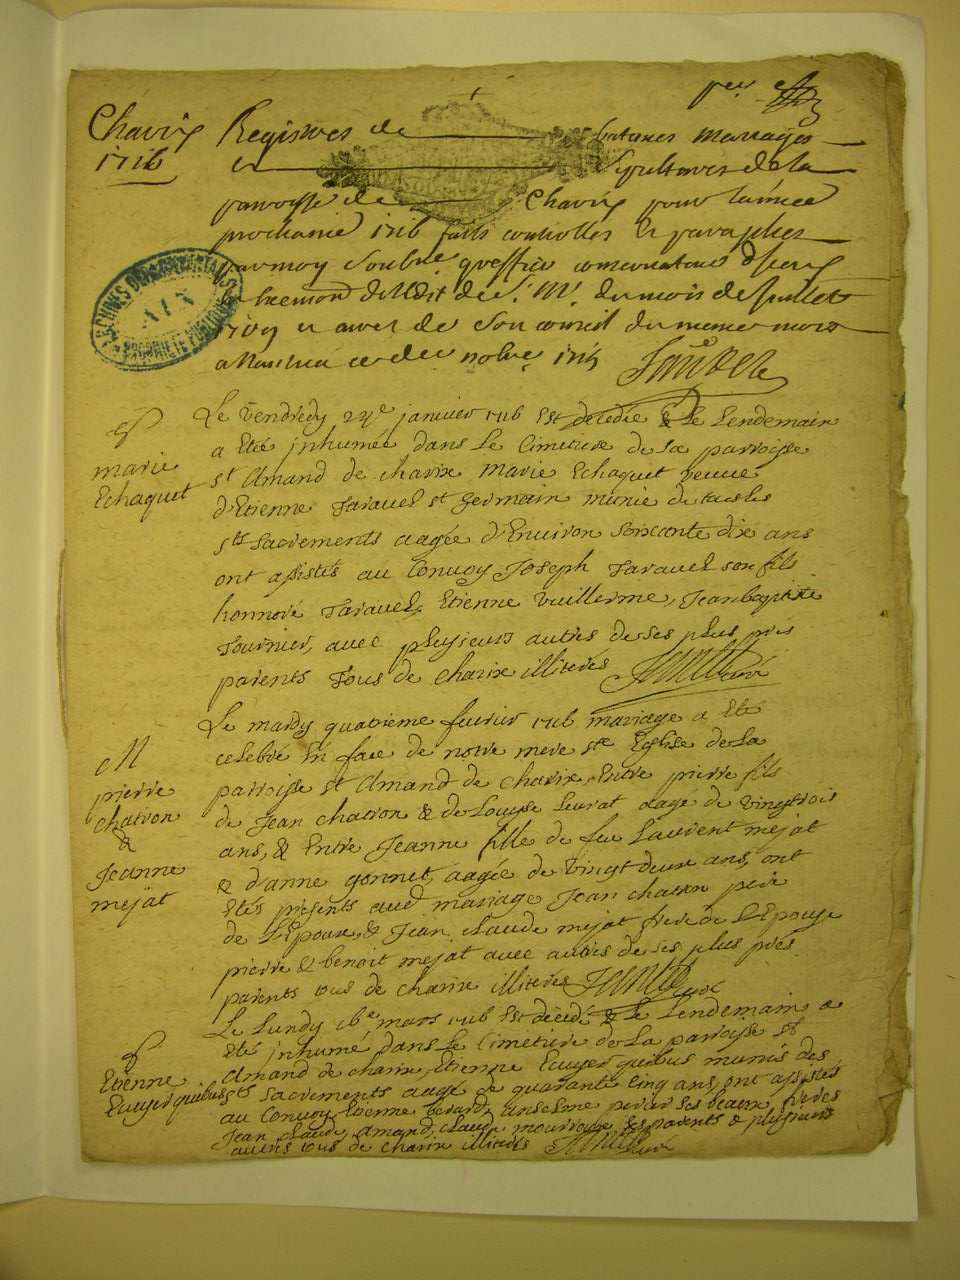 Charix
1716
Registres de batemes mariages
et sepultures de la
parroisse de Charix pour lannée
prochaine 1716 faits controllés et paraphes
par moy greffier conservateur
du mois de Juillet
1709 et arrest de son conseil du meme mois
a Nantua ce 1715
ARCHIVES DÉPARTEMENTALES
AIN
PROPRIÉTÉ PUBLIQUE
marie
Echaquet
Le Vendredy 24e janvier 1716 Est decedée & Le Lendemain
a eté inhumée dans Le Cimetiere de La parroisse
st Amand de charix Marie Echaquet veuve
d'Etienne Taravel st germain munie de tous les
sts Sacrements aagée d'Environ soixante dix ans
ont assistés au Convoy Joseph Taravel son fils
honnoré Taravel, Etienne Vuillerme, Jean baptiste
Tournier, avec plusieurs autres de ses plus pres
parents Tous de charix illiterés
curé
M
pierre
chatron
&
Jeanne
mejat
Le mardy quatrieme fevrier 1716 mariage a Eté
celebré En face de notre mere ste Eglise de La
parroisse st Amand de charix, Entre pierre fils
de Jean chatron & de Louyse Leurat aagé de vingttrois
ans, & Entre Jeanne fille de feu Laurent mejat
& d'anne gonnet, aagée de vingt deux ans, ont
Etés presents aud mariage Jean chatron pere
de L'Epoux, & Jean Claude mejat frere de L'Epouse
pierre & benoit mejat avec autres de ses plus prés
parents tous de charix illiterés
curé
Etienne
Euuyer quibus
Le Lundy 16e mars 1716 Est decedé & Le Lendemain a
Eté inhumé dans Le Cimetiere de La parroisse st
Amand de charix, Etienne Euuyer quibus munis des
sts Sacrements aagé de quarante Cinq ans, ont assistés
au Convoy Etienne berard, anselme perar ses beaux freres
Jean Claude, Amand, Claude mourroux ses parents & plusieurs
autres tous de charix illiterés
curé